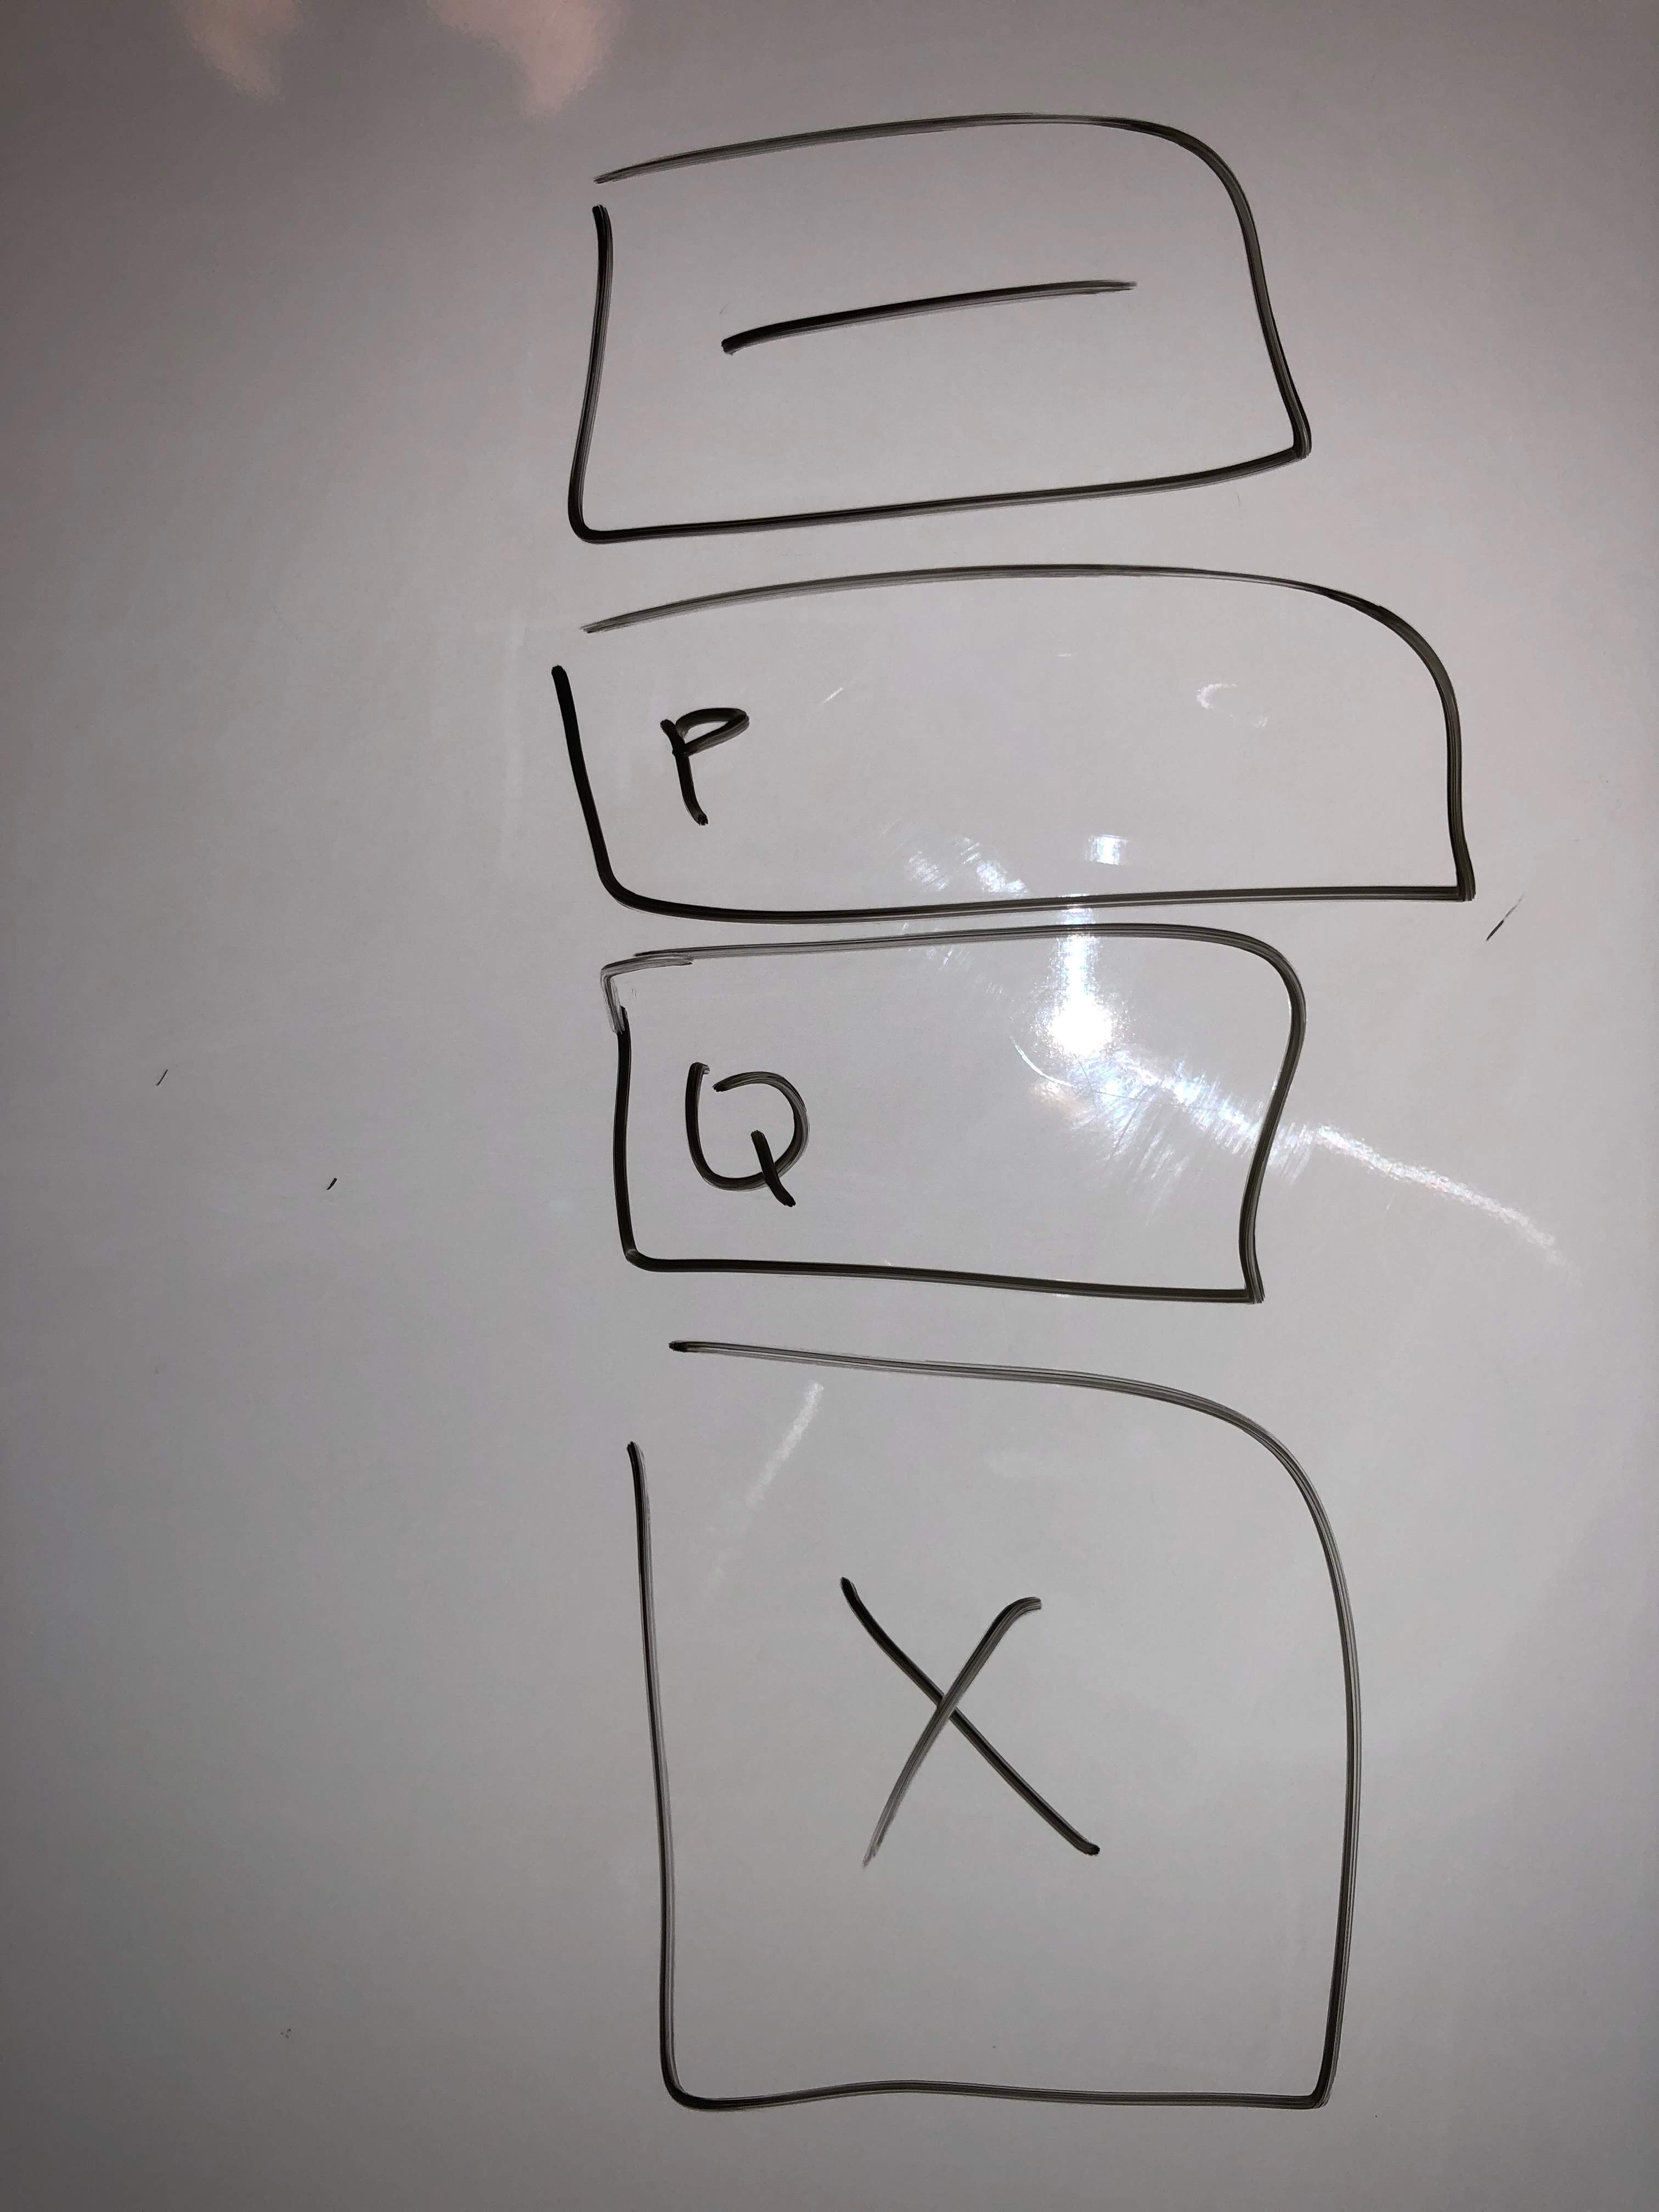 —
P
Q
X